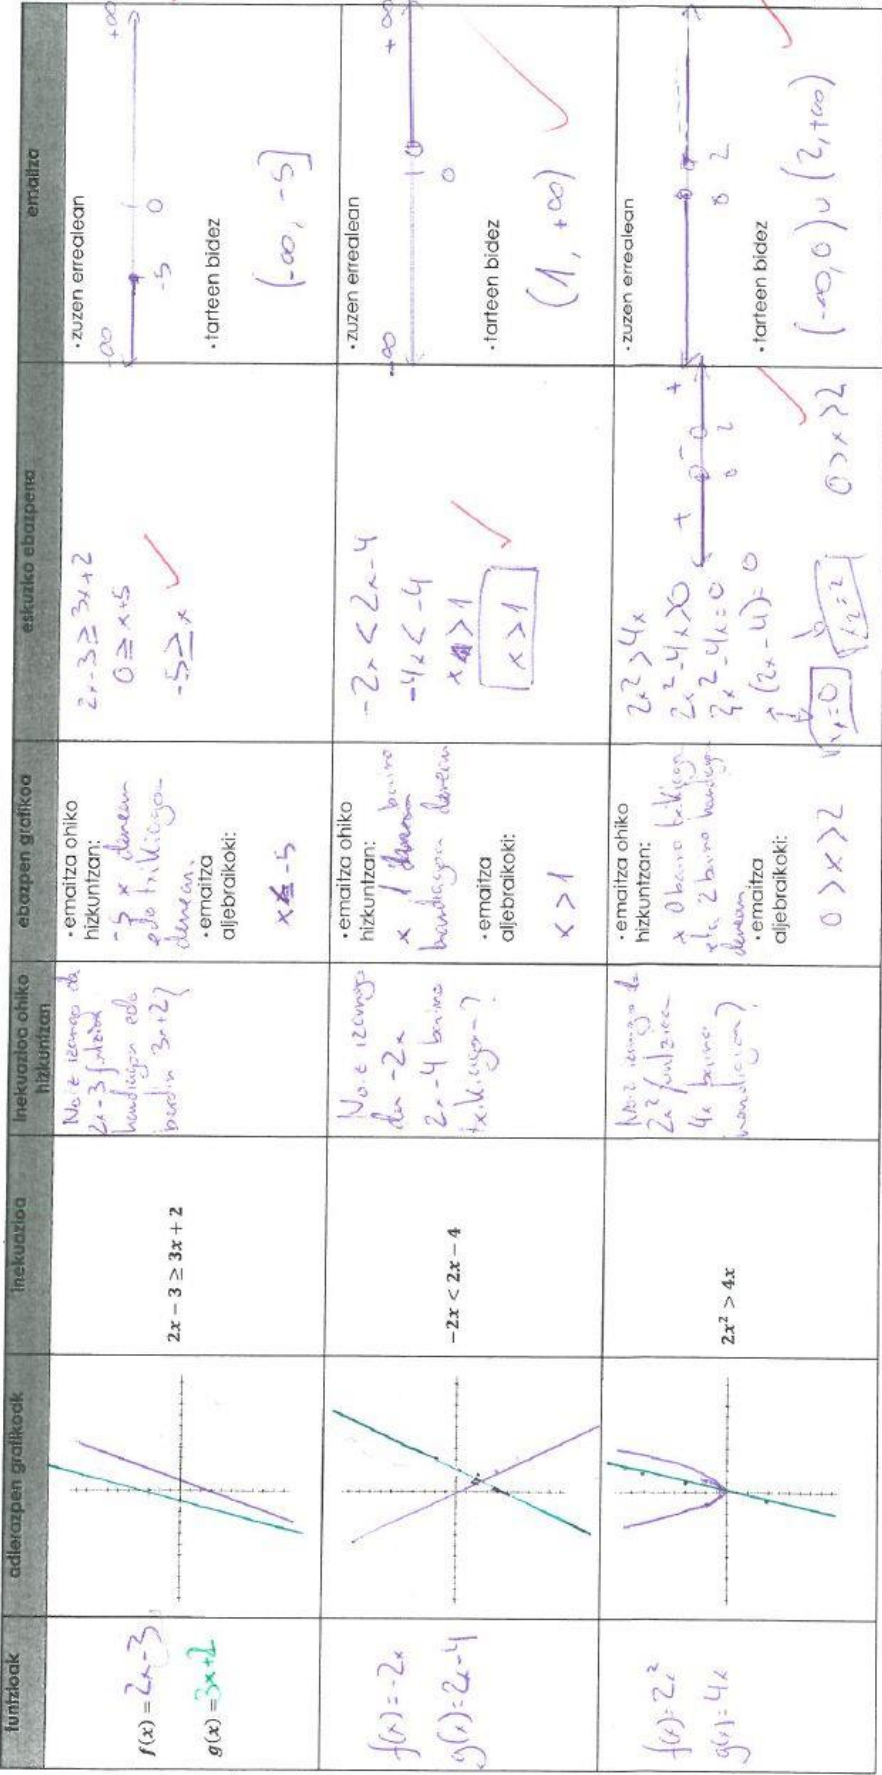 funtzioak
adierazpen grafikoak
inekuazioa
inekuazioa ohiko
hizkuntzan
ebazpen grafikoa
eskuzko ebazpena
emaitza
f(x) = 2x-3
g(x) = 3x+2
2x − 3 ≥ 3x + 2
Noiz izango da
2x-3 funtzioa
handiagoa edo
berdin 3x+2?
· emaitza ohiko
hizkuntzan:
-5 x denean
edo txikiagoa
denean.
· emaitza
aljebraikoki:
x ≤ -5
2x-3 ≥ 3x+2
0 ≥ x+5
-5 ≥ x
· zuzen errealean
-∞ +∞
-5 0
· tarteen bidez
(-∞, -5]
f(x)=-2x
g(x)=2x-4
−2x < 2x − 4
Noiz izango
da -2x
2x-4 baino
txikiagoa?
· emaitza ohiko
hizkuntzan:
x 1 baino
handiagoa denean
· emaitza
aljebraikoki:
x > 1
-2x < 2x-4
-4x < -4
x > 1
x > 1
· zuzen errealean
-∞ +∞
0
· tarteen bidez
(1, +∞)
f(x)=2x²
g(x)=4x
2x² > 4x
Noiz izango da
2x² funtzioa
4x baino
handiagoa?
· emaitza ohiko
hizkuntzan:
x 0 baino txikiagoa
eta 2 baino handiagoa
denean
· emaitza
aljebraikoki:
0 > x > 2
2x² > 4x
2x²-4x>0
2x²-4x=0
x(2x-4)=0
x₁=0 x₂=2
+ - +
0 2
0 > x > 2
· zuzen errealean
0 2
· tarteen bidez
(-∞,0)∪(2,+∞)